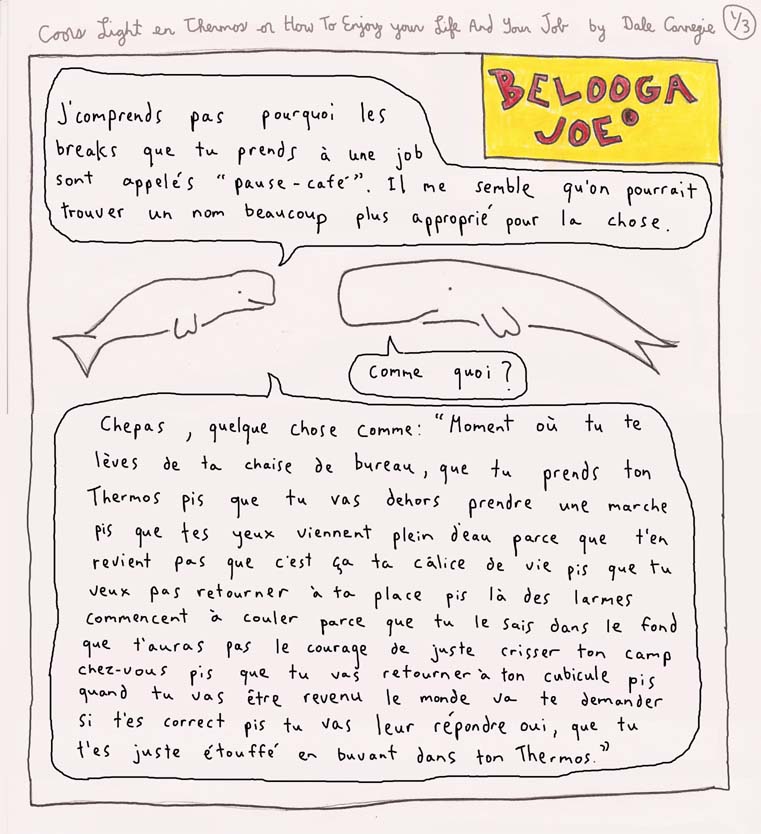 Coors Light en Thermos or How To Enjoy your Life And Your Job by Dale Carnegie 1/3
BELOOGA
JOE®
J'comprends pas pourquoi les
breaks que tu prends à une job
sont appelés "pause-café". Il me semble qu'on pourrait
trouver un nom beaucoup plus approprié pour la chose.
Comme quoi?
Chepas, quelque chose comme: "Moment où tu te
lèves de ta chaise de bureau, que tu prends ton
Thermos pis que tu vas dehors prendre une marche
pis que tes yeux viennent plein d'eau parce que t'en
revient pas que c'est ça ta câlice de vie pis que tu
veux pas retourner à ta place pis là des larmes
commencent à couler parce que tu le sais dans le fond
que t'auras pas le courage de juste crisser ton camp
chez-vous pis que tu vas retourner à ton cubicule pis
quand tu vas être revenu le monde va te demander
si t'es correct pis tu vas leur répondre oui, que tu
t'es juste étouffé en buvant dans ton Thermos."